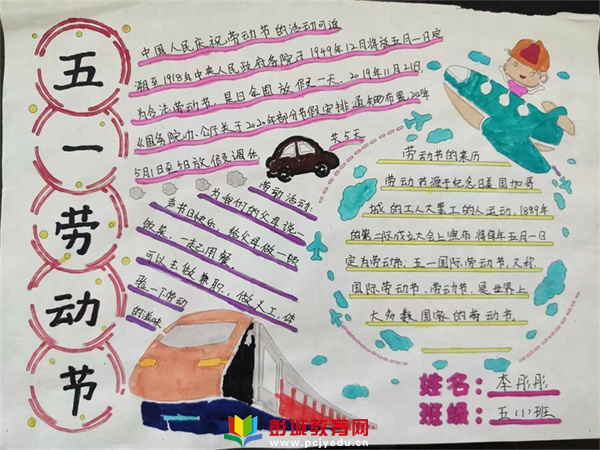 五
一
劳
动
节
中国人民庆祝劳动节的活动可追
溯至1918年中央人民政府务院于1949年12月将放五月一日定
为合法劳动节,是日全国放假一天,2019年11月21日,
《国务院办公厅关于2020年部分节假安排通知》布置,2020年
5月1日至5日放假调休
共5天
劳动活动:
为我们的父母说一
声节日快乐,给父母做一顿
饭菜,一起用餐,
可以去做兼职,做义工,体
验一个劳动
的滋味
劳动节的来历
劳动节源于纪念美国加哥
城的工人大罢工的人运动,1889年
的第二际成立大会上宣布将每年五月一日
定为劳动节,五一国际劳动节,又称
国际劳动节,劳动节,是世界上
大多数国家的劳动节
姓名:李彤彤
班级:五(1)班
彭城教育网
www.pcjyedu.cn